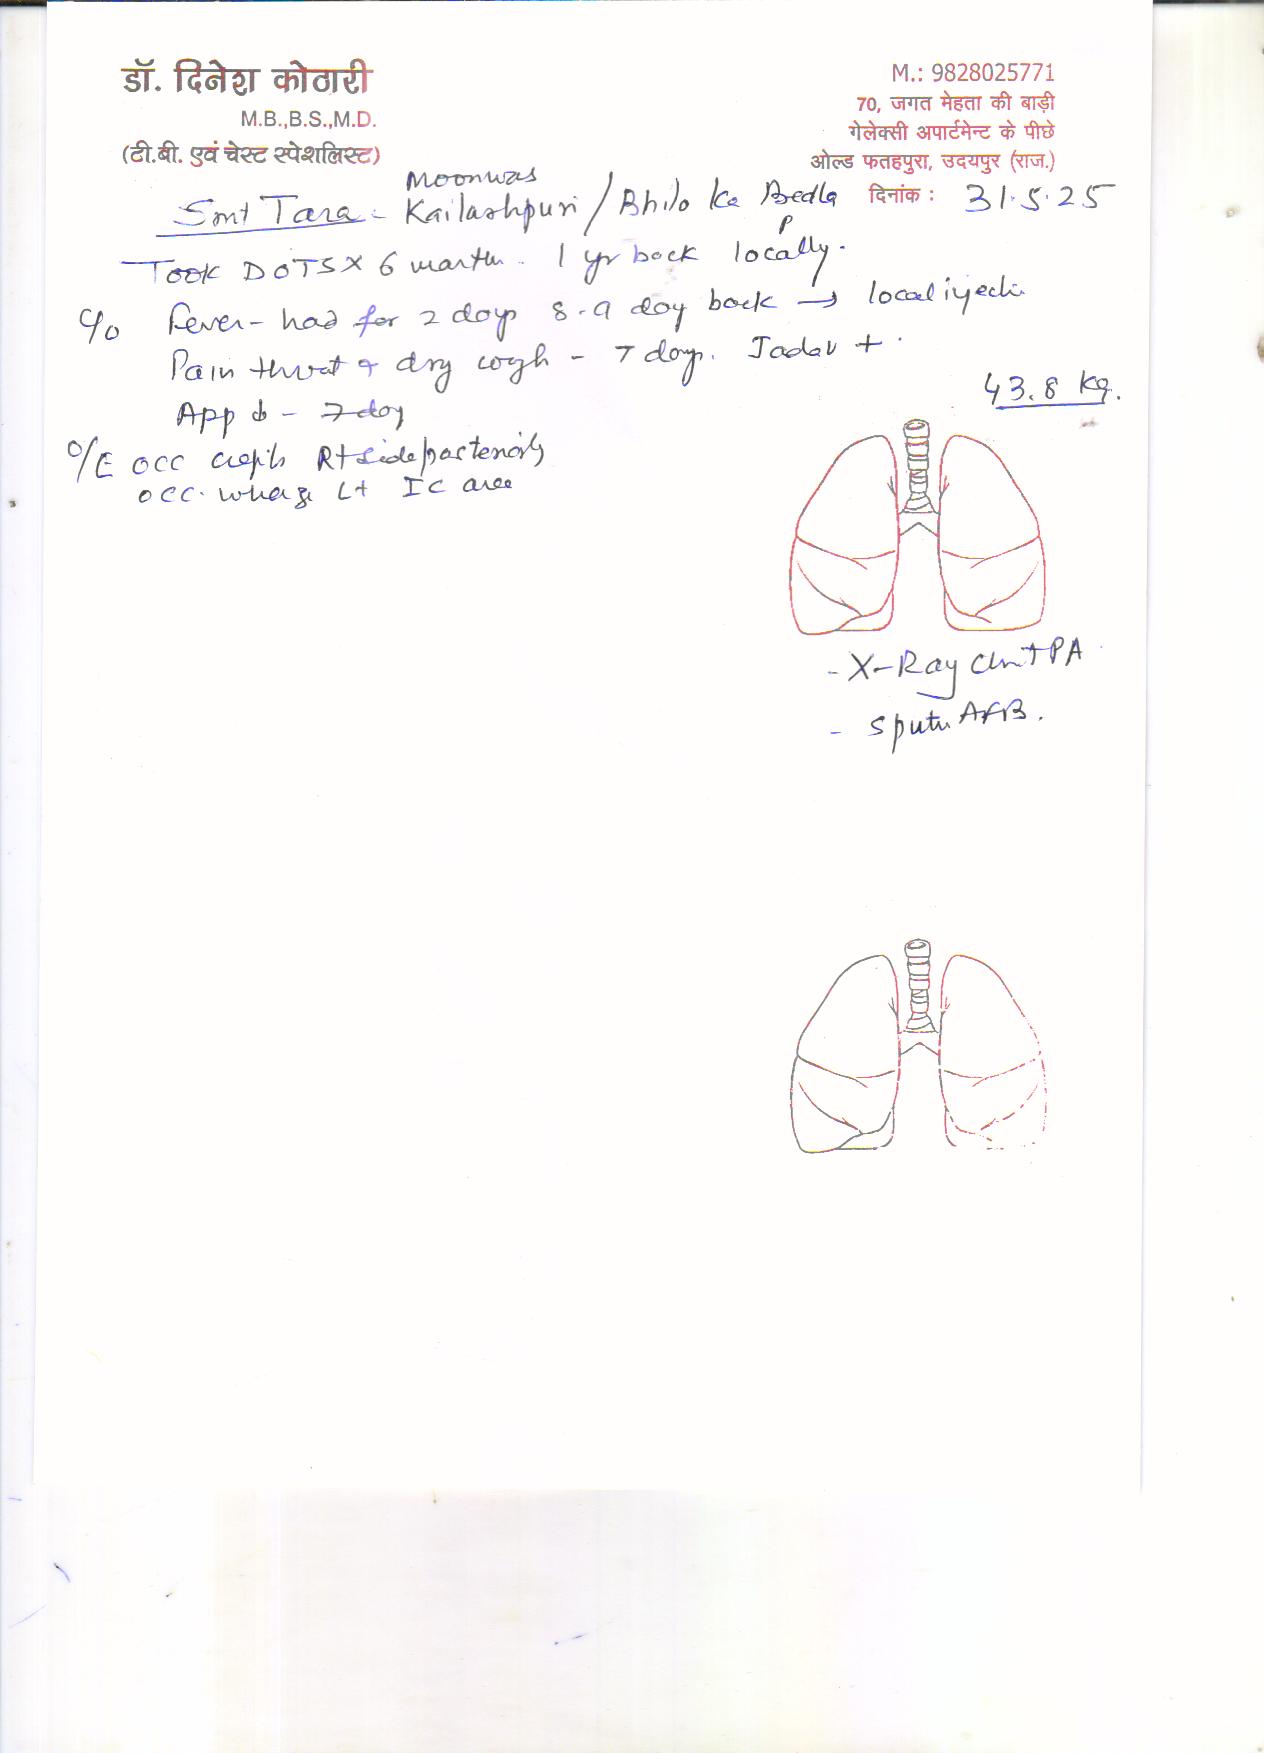 डॉ. दिनेश कोठारी
M.B.,B.S.,M.D.
(टी.बी. एवं चेस्ट स्पेशलिस्ट)
M.: 9828025771
70, जगत मेहता की बाड़ी
गेलेक्सी अपार्टमेन्ट के पीछे
ओल्ड फतहपुरा, उदयपुर (राज.)
दिनांक : 31.5.25
Moonwas
Smt Tara - Kailashpuri / Bhilo Ka Bedla
P
Took DOTS X 6 month . 1 yr back locally.
C/o Fever - had for 2 days 8-9 day back → local injecti
Pain throat & dry cough - 7 days.
+
43.8 kg.
App ↓ - 7 day
O/E occ crepts Rt side posteriorly
occ. wheeze Lt IC area
- X-Ray Chest PA
- Sputum AFB.